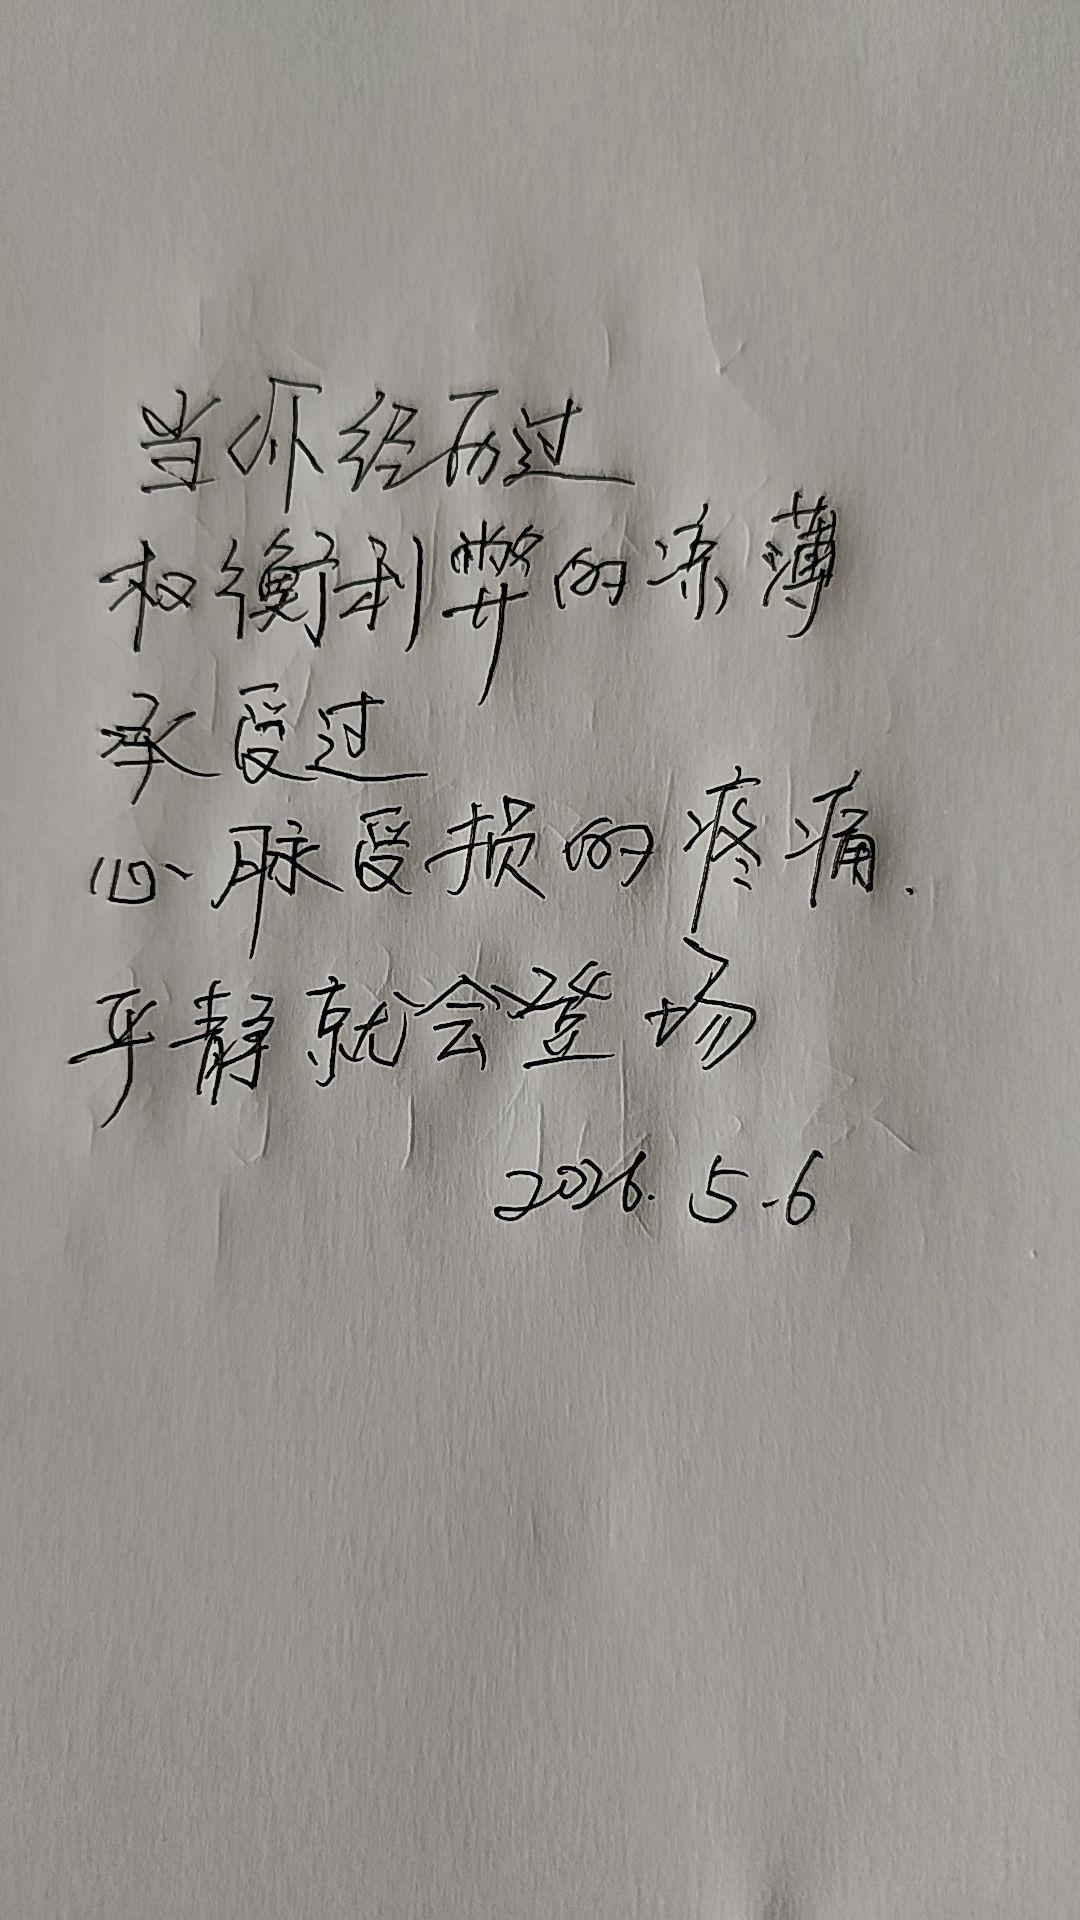 当你经历过
权衡利弊的凉薄
承受过
心脉受损的疼痛.
平静就会登场
2026.5.6